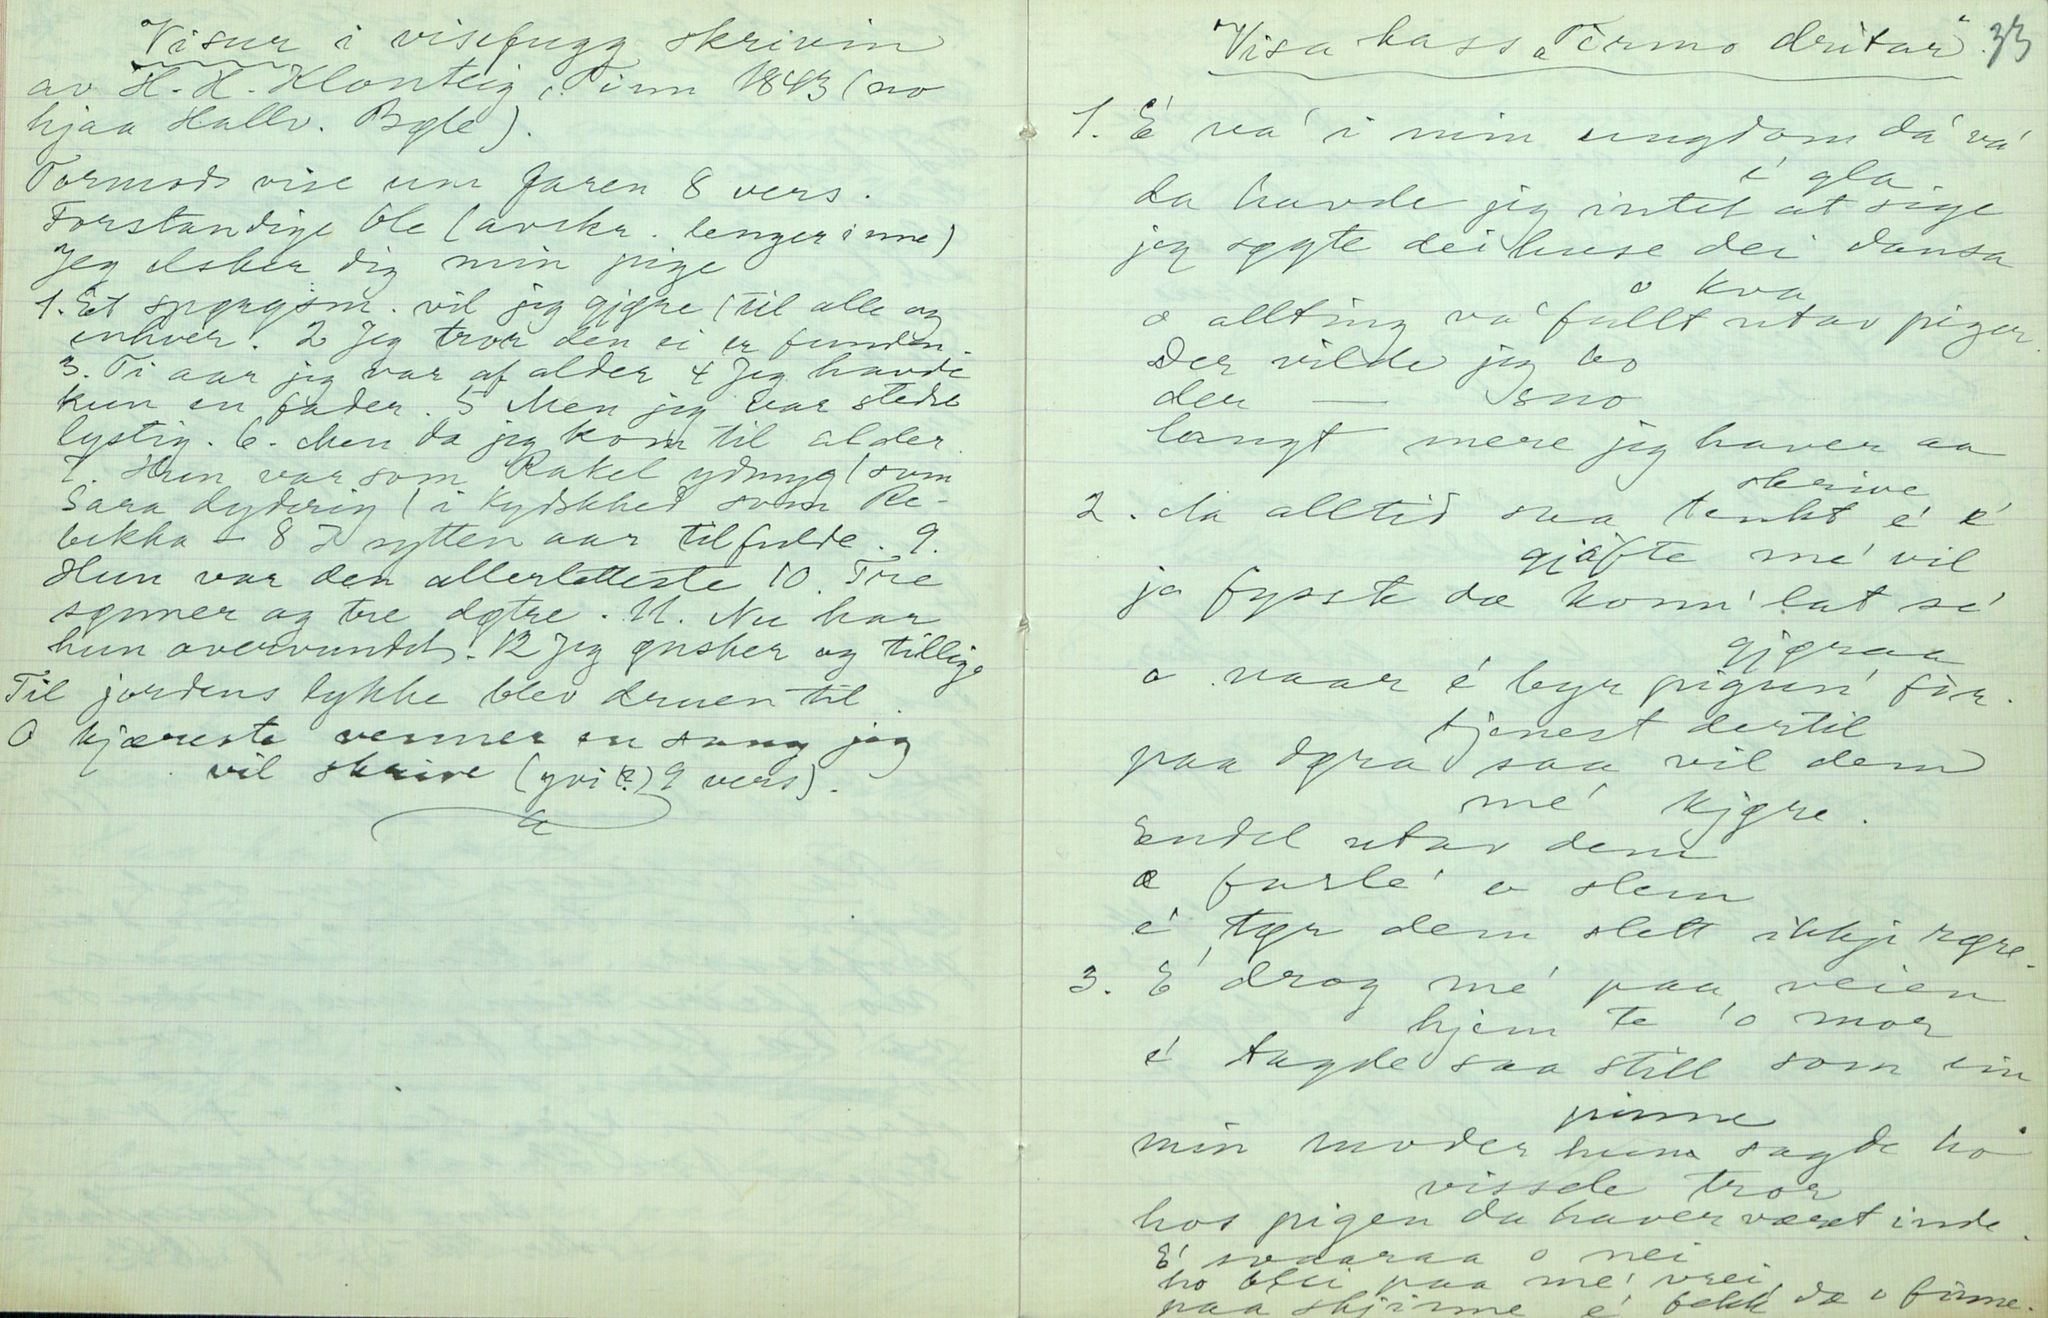 Visur i visebugg skrivin
av H. H. Klonteig, Tinn 1843 (no
hjaa Hallv. Bøle).
Tormods vise um Jaren 8 vers.
Forstandige Ole (avskr. lenger inne)
Jeg elsker dig min pige
1. Et spørgsm. vil jeg gjøre (til alle og
enhver. 2 Jeg tror den ei er funden.
3. Ti aar jeg var af alder 4 Jeg havde
kun en fader. 5 Men jeg var stedse
lystig. 6. Men da jeg kom til alder
7. Hun var som Rakel ydmyg (som
Sara dyderig (i kydskhed som Re-
bekka — 8 I sytten aar tilfulde. 9.
Hun var den allerletteste 10. Tre
sønner og tre døtre. 11. Nu har
hun overvundet. 12 Jeg ønsker og tillige
Til jordens lykke blev druen til.
O kjæreste venner en sang jeg
vil skrive (yvi(?) 9 vers).
"Visa hass Tormo dritar". 33
1. É va' i min ungdom dá vá'
é gla
da havde jeg intet at sige
jeg søgte dei huse dei dansa
o kva
o allting va' fullt utav piger.
Der vilde jeg bo
der — sno
langt mere jeg haver aa
skrive
2. Ja alltid saa tenkt é é
gjáfte mé vil
ja fysste dæ komm' lat sé
gjøraa
o naar é byr pigun' fin
tjenest dertil
paa døra saa vil dem
mé kjøre.
Endel utav dem
æ farlé o slem
é tør dem slett ikkje røre.
3. É drog mé paa veien
hjem te 'o mor
é tagde saa still som ein
pinne
min moder hun sagde ho
vissele tror
hos pigen du haver været inde.
É svaaraa o nei
ho blei paa mé vrei
paa skjinne é fekk dæ o finne.